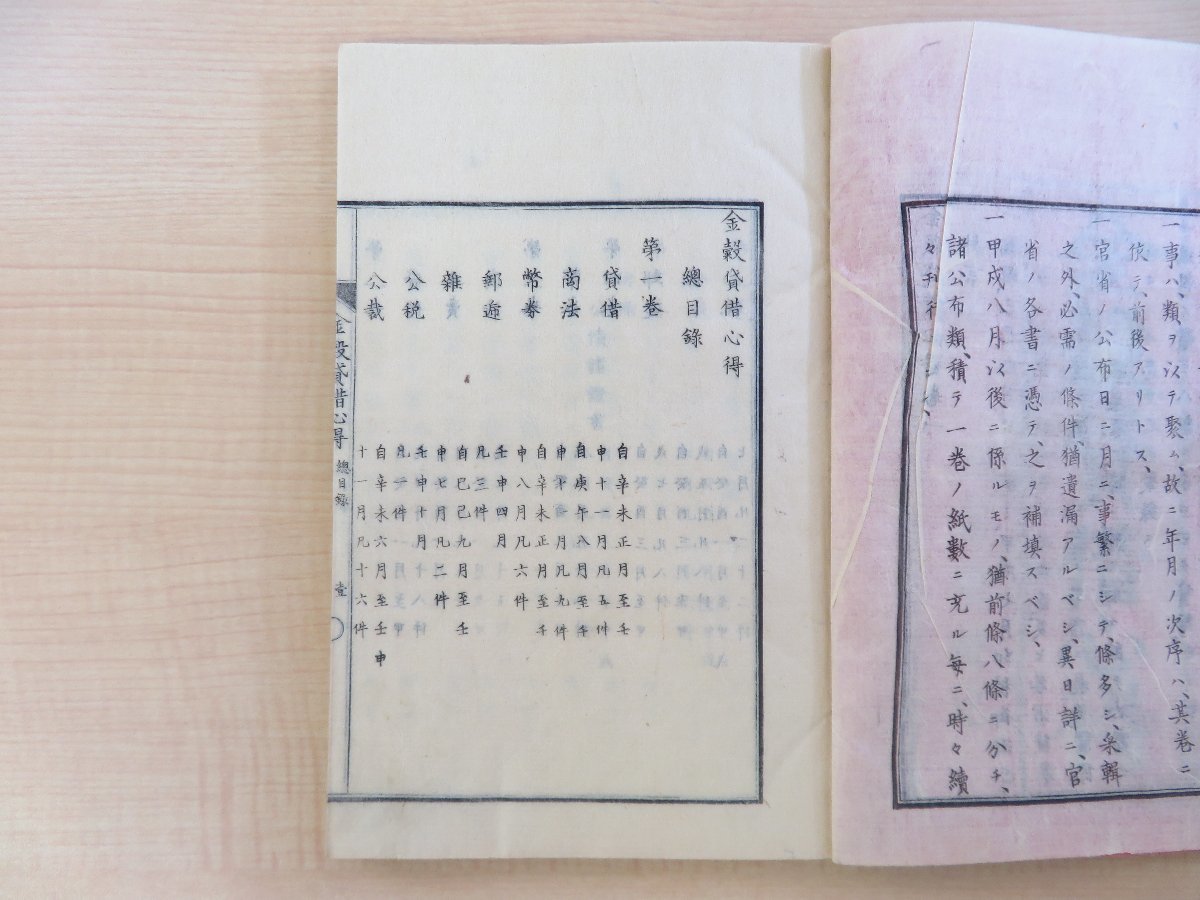 一事ハ、類ヲ以テ聚ム、故ニ年月ノ次序ハ、其卷ニ
依テ、前後アリトス、
一官省ノ公布日ニ月ニ、事繁ニシテ、條多シ、采輯
之外、必需ノ條件、猶遺漏アルベシ、異日詳ニ、官
省ノ各書ニ憑テ、之ヲ補填スベシ、
一甲戌八月以後ニ係ルモノ、猶前條八條ニ分チ、
諸公布類、積テ一卷ノ紙數ニ充ル每ニ、時々續
々刊行
金穀貸借心得
總目錄
第一卷
貸借 自辛未正月至壬申十一月凡五件
商法 自庚午八月至壬申十月凡九件
幣券 自辛未正月至壬申八月凡六件
郵遞 壬申四月凡三件
雜 自己巳九月至壬申七月凡二件
公税 壬申十月凡一件
公裁 自辛未六月至壬申十一月凡十六件
金穀貸借心得 總目錄 壹